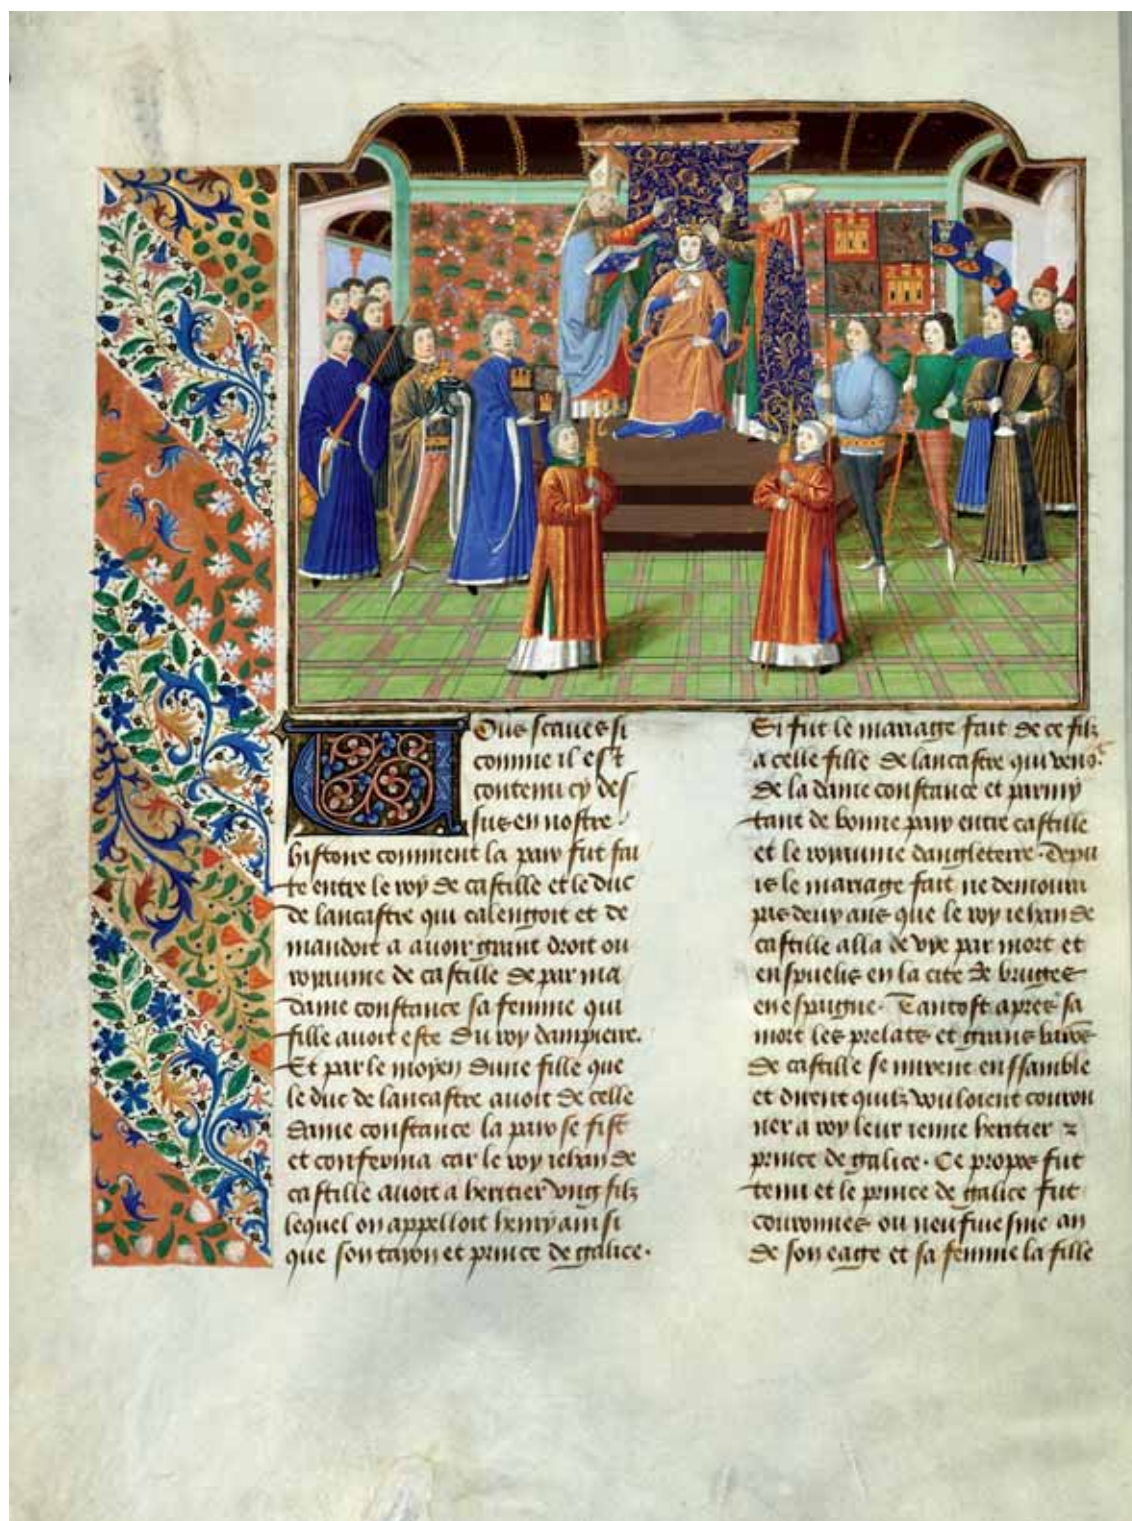 Vous scaues si
comme il est
contenu cy des
sus en nostre
histoire comment la paix fut fai
te entre le roy de castille et le duc
de lancastre qui calengoit et de
mandoit a auoir grant droit ou
royaume de castille de par ma
dame constance sa femme qui
fille auoit este du roy dampietre.
Et par le moyen dune fille que
le duc de lancastre auoit de celle
dame constance la paix se fist
et conferma car le roy iehan de
castille auoit a heritier vng filz
lequel on appelloit henry ainsi
que son tayon et prince de galice.
Si fut le mariage fait de ce filz
a celle fille de lancastre qui
de la dame constance et parmy
tant de bonne paix entre castille
et le royaume dangleterre. Depu
is le mariage fait ne demoura
pas deux ans que le roy iehan de
castille alla de vye par mort et
enseuelis en la cite de bruges
en espaigne. Tantost apres sa
mort les prelats et grans barons
de castille se mirent enssamble
et dirent quilz vouloient couron
ner a roy leur ienne heritier z
prince de galice. Ce propos fut
tenu et le prince de galice fut
couronnes ou neufuiesme an
de son eage et sa femme la fille